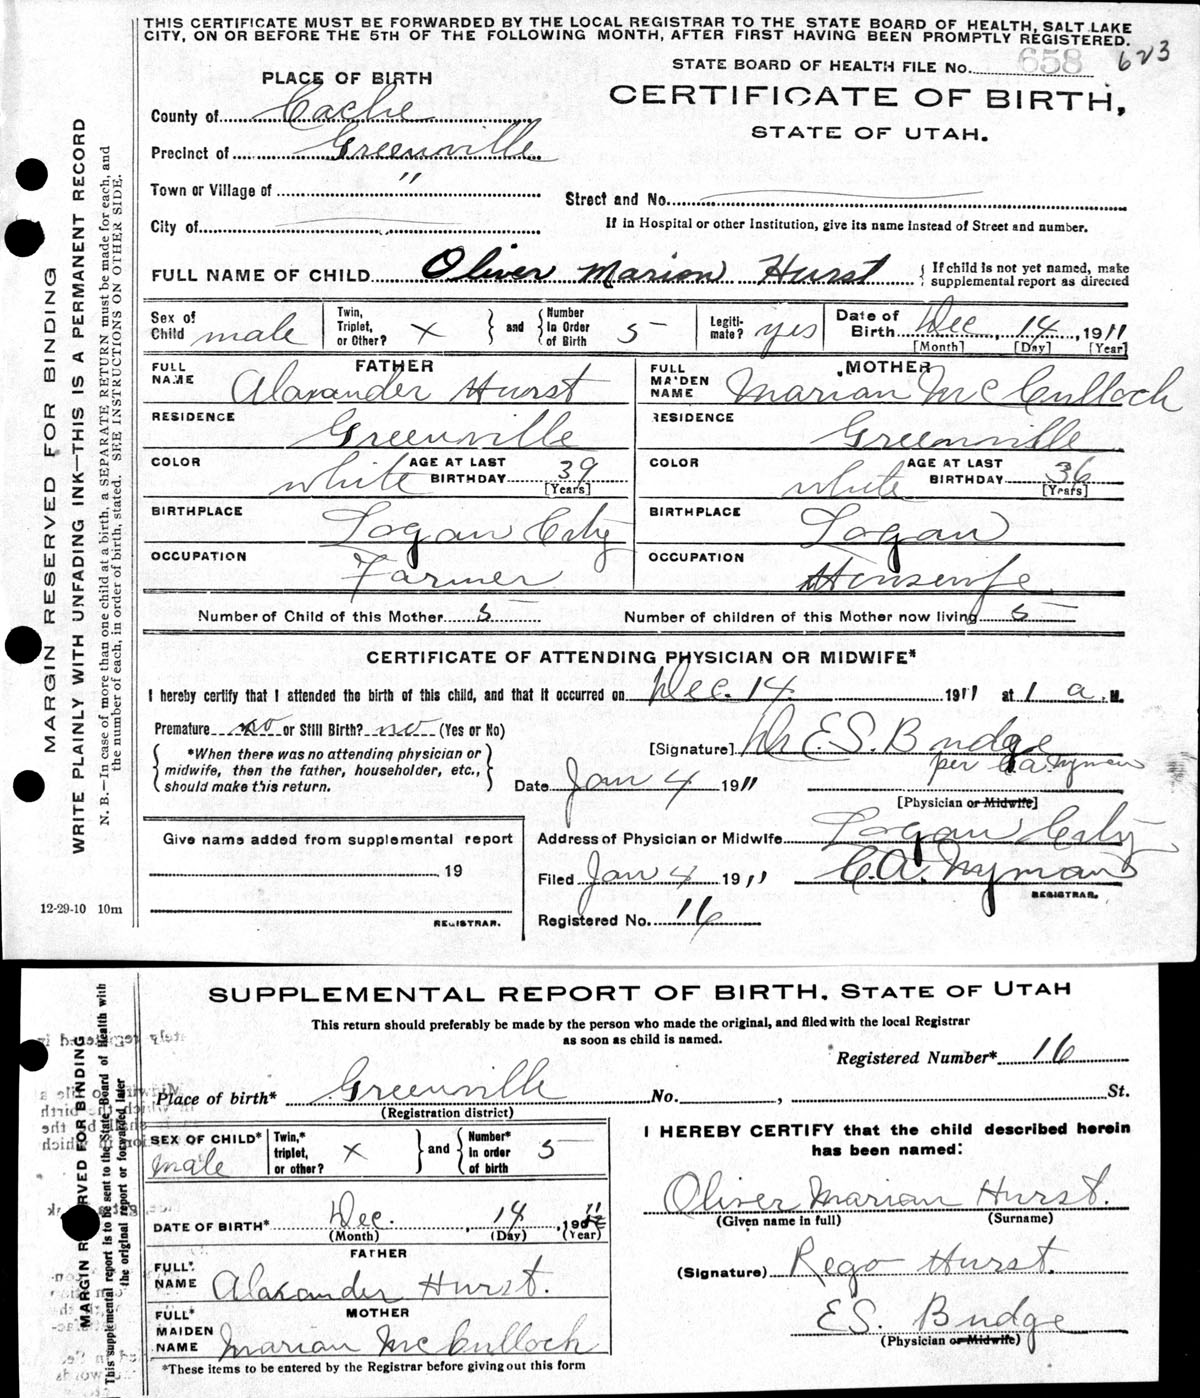 THIS CERTIFICATE MUST BE FORWARDED BY THE LOCAL REGISTRAR TO THE STATE BOARD OF HEALTH, SALT LAKE
CITY, ON OR BEFORE THE 5TH OF THE FOLLOWING MONTH, AFTER FIRST HAVING BEEN PROMPTLY REGISTERED.
STATE BOARD OF HEALTH FILE No. 658 623
PLACE OF BIRTH
CERTIFICATE OF BIRTH,
STATE OF UTAH.
County of Cache
Precinct of Greenville
Town or Village of "
Street and No.
City of
If in Hospital or other Institution, give its name instead of Street and number.
FULL NAME OF CHILD Oliver Marion Hurst { If child is not yet named, make
supplemental report as directed
Sex of Child male
Twin, Triplet, or Other? X } and { Number In Order of Birth 5
Legiti-mate? yes
Date of Birth Dec, 14, 1911
[Month] [Day] [Year]
FATHER
FULL NAME Alaxander Hurst
MOTHER
FULL MAIDEN NAME Marian McCulloch
RESIDENCE Greenville
RESIDENCE Greenville
COLOR white AGE AT LAST BIRTHDAY 39 [Years]
COLOR white AGE AT LAST BIRTHDAY 36 [Years]
BIRTHPLACE Logan City
BIRTHPLACE Logan
OCCUPATION Farmer
OCCUPATION Housewife
Number of Child of this Mother 5 Number of children of this Mother now living 5
CERTIFICATE OF ATTENDING PHYSICIAN OR MIDWIFE*
I hereby certify that I attended the birth of this child, and that it occurred on Dec. 14 1911 at 1 a. M.
Premature no or Still Birth? no (Yes or No)
{ *When there was no attending physician or
midwife, then the father, householder, etc.,
should make this return. }
[Signature] Dr E.S. Budge
per C.A. Nyman
Date Jan 4 1911
[Physician or Midwife]
Give name added from supplemental report
19
REGISTRAR.
Address of Physician or Midwife Logan City
Filed Jan 4 1911 C.A. Nyman
REGISTRAR.
Registered No. 16
12-29-10 10m
MARGIN RESERVED FOR BINDING
WRITE PLAINLY WITH UNFADING INK—THIS IS A PERMANENT RECORD
N. B.—In case of more than one child at a birth, a SEPARATE RETURN must be made for each, and
the number of each, in order of birth, stated. SEE INSTRUCTIONS ON OTHER SIDE.
SUPPLEMENTAL REPORT OF BIRTH, STATE OF UTAH
This return should preferably be made by the person who made the original, and filed with the local Registrar
as soon as child is named.
Registered Number* 16
Place of birth* Greenville No. , St.
(Registration district)
SEX OF CHILD* male
Twin,* triplet, or other? X } and { Number* In order of birth 5
DATE OF BIRTH* Dec. , 14 , 19
(Month) (Day) (Year)
FATHER
FULL* NAME Alaxander Hurst.
MOTHER
FULL* MAIDEN NAME Marian McCulloch
*These items to be entered by the Registrar before giving out this form
I HEREBY CERTIFY that the child described herein
has been named:
Oliver Marian Hurst.
(Given name in full) (Surname)
(Signature) Rego Hurst.
E.S. Budge
(Physician or Midwife)
MARGIN RESERVED FOR BINDING
This supplemental report is to be sent to the State Board of Health with
the original report or forwarded later